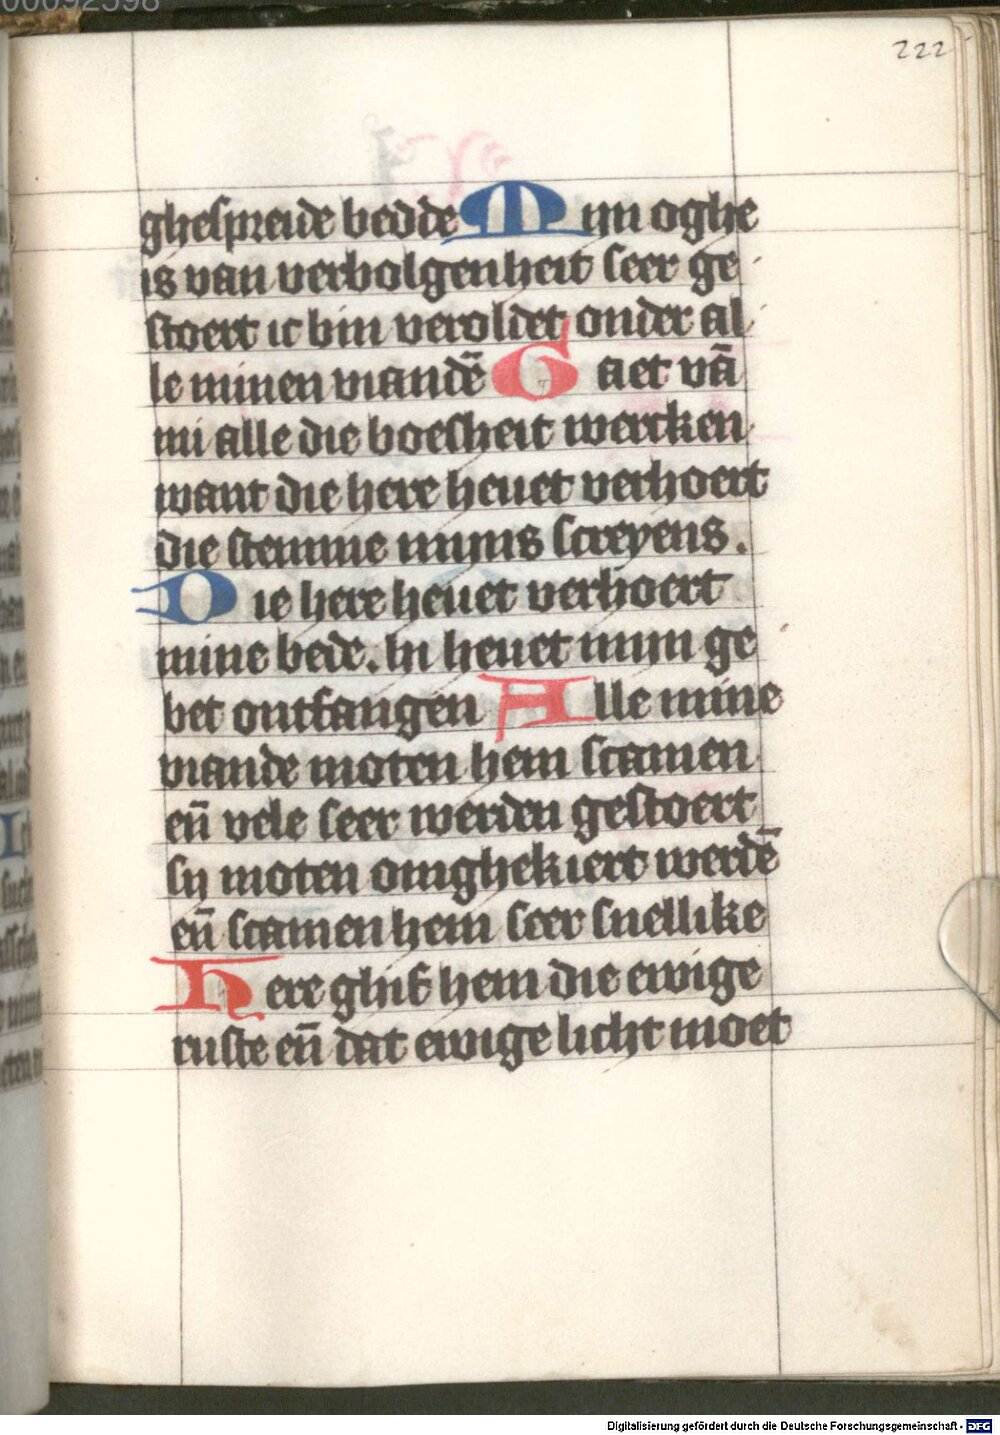 222
ghespreide bedde Mijn oghe
is van verbolgenheit seer ge
stoert ic bin veroldet onder al
le minen viandē Gaet vā
mi alle die boesheit wercken
want die here heuet verhoert
die stemme mijns screyens.
Die here heuet verhoert
mine bede. In heuet mijn ge
bet ontfangen Alle mine
viande moten hem scamen
eñ vele seer werden gestoert
sy moten omghekiert werdē
eñ scamen hem seer snellike
Here ghif hem die ewige
ruste eñ dat ewige licht moet
Digitalisierung gefördert durch die Deutsche Forschungsgemeinschaft - DFG